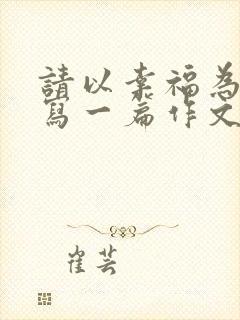 請以幸福為
寫一篇作文
崔芸